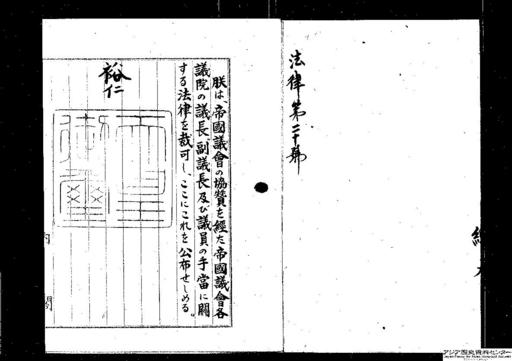 法律第二十號
朕は、帝國議會の協贊を經た帝國議會各
議院の議長、副議長及び議員の手當に關
する法律を裁可し、ここにこれを公布せしめる。
裕仁
内
閣
アジア歴史資料センター